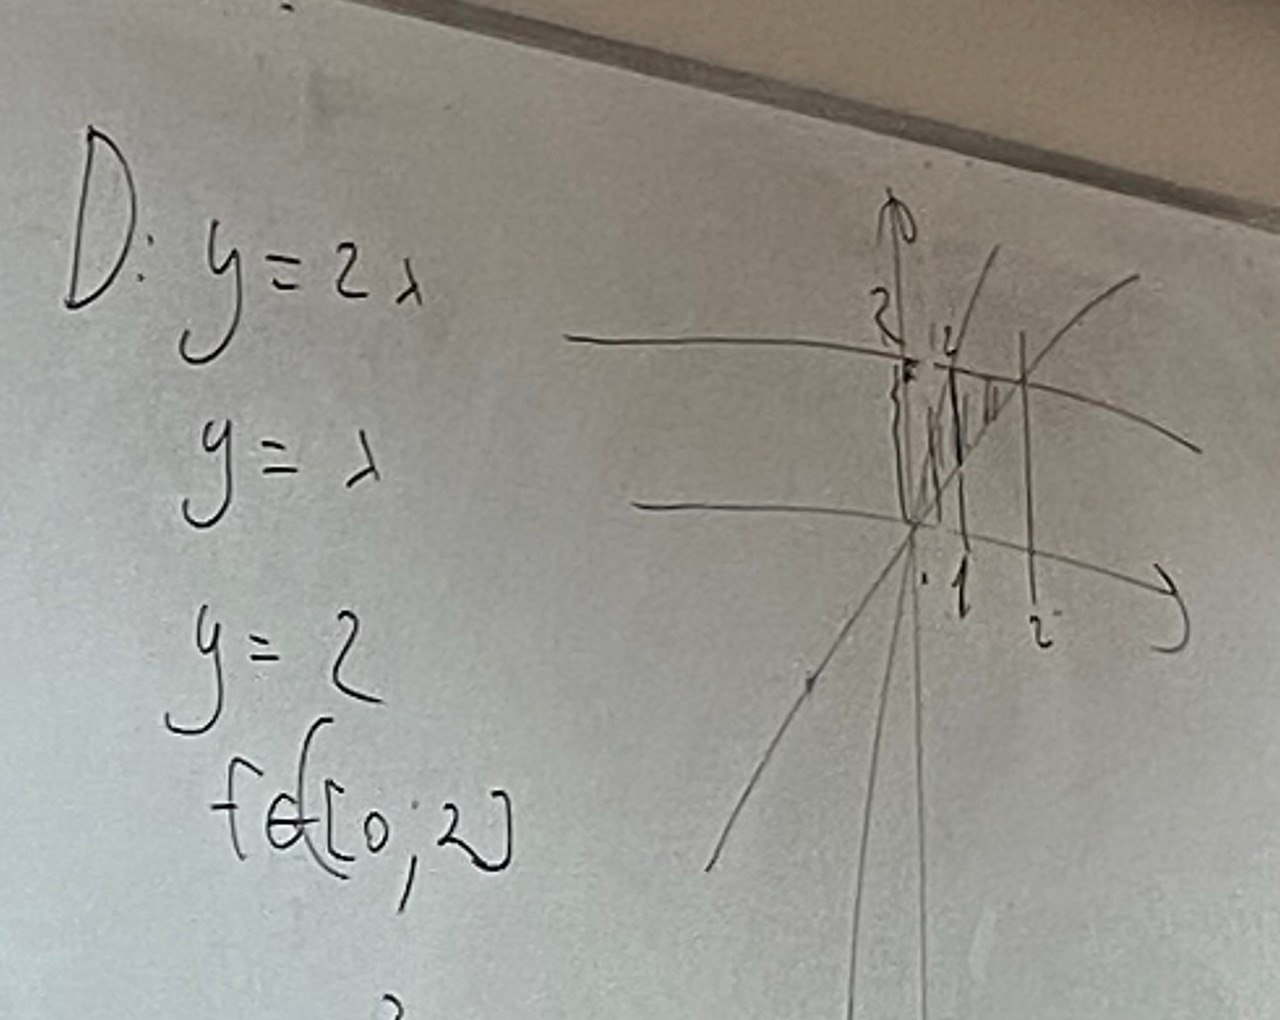 D: y = 2x
y = x
y = 2
f ∈ [0; 2]
2
1
2